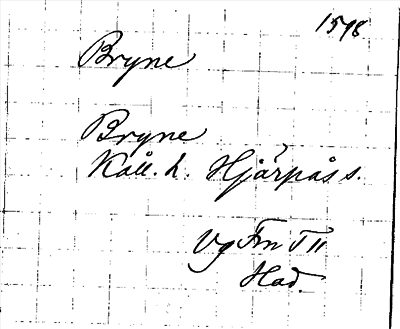 1598
Bryne
Bryne
Kåll. h. Hjärpås s.
Vg Fm T 11
Had.